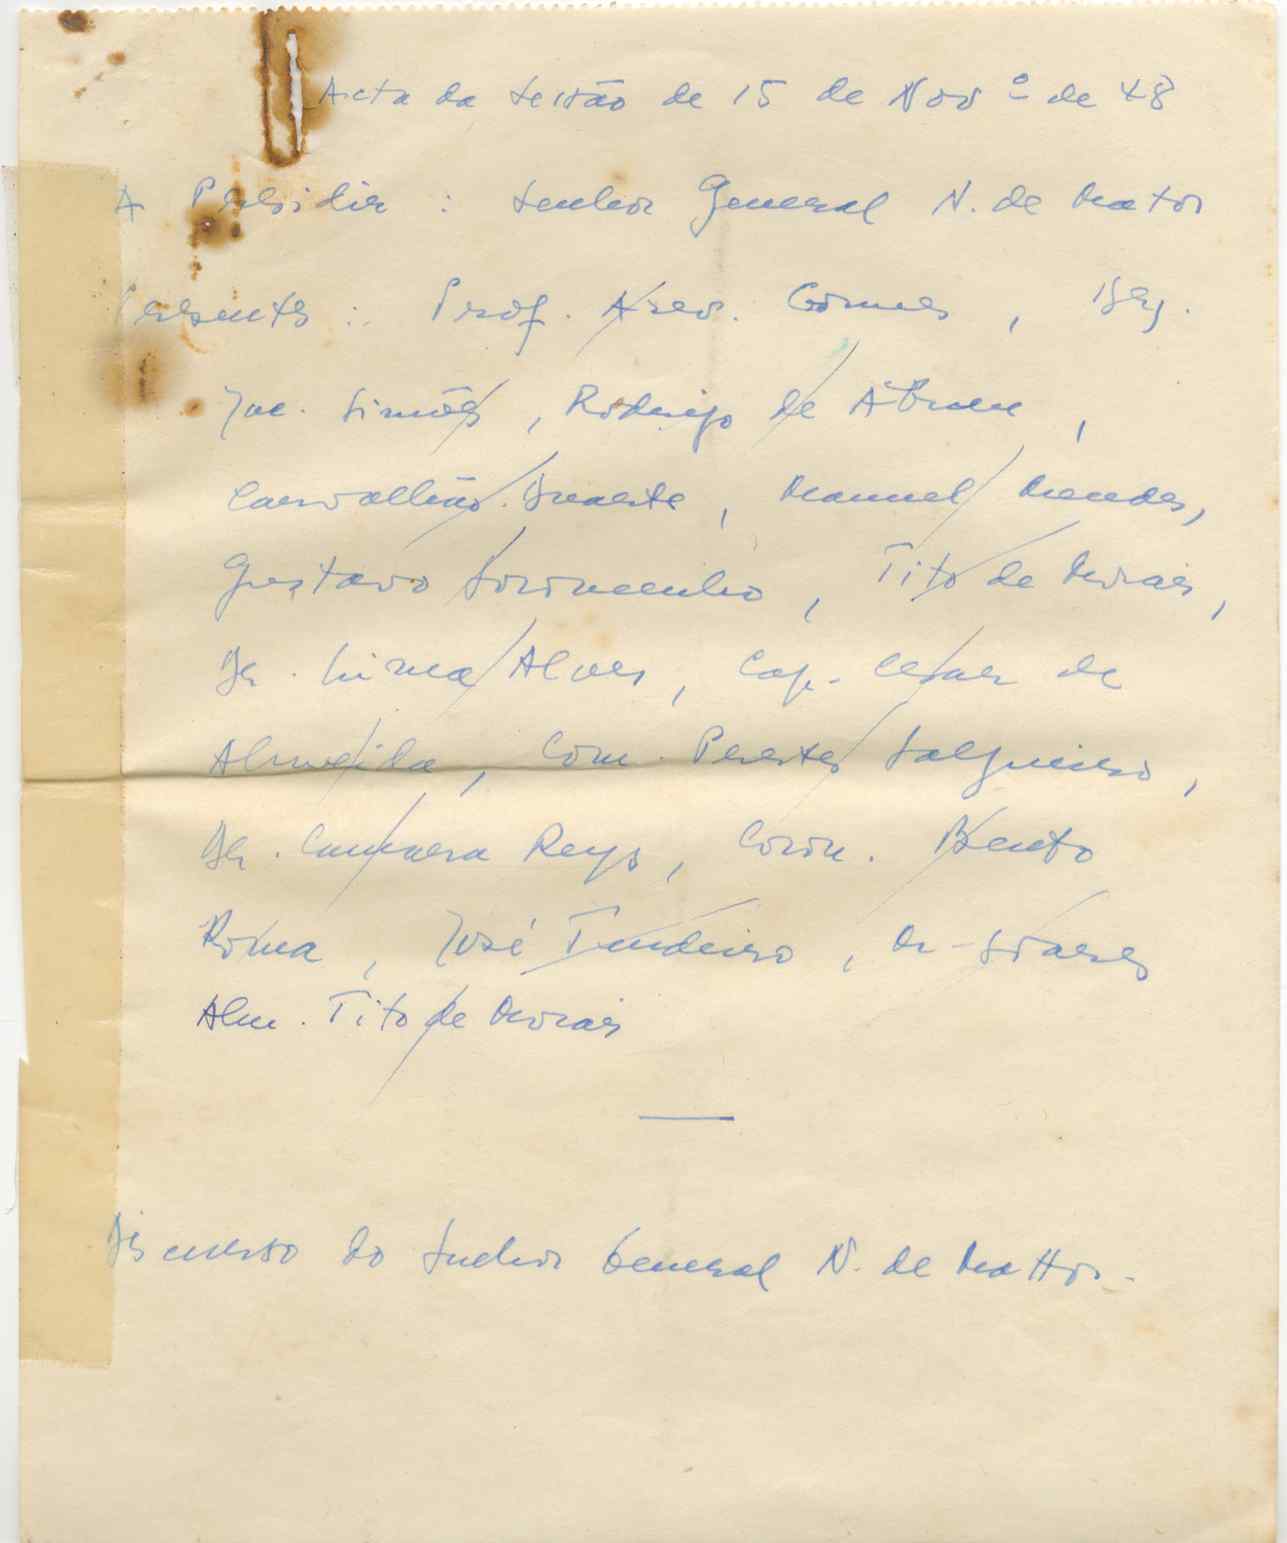 Acta da sessão de 15 de Novº de 48
A Presidir : Senhor General N. de Matos
Presentes : Prof. Azev. Gomes,
Jac. Simões, Rodrigo de Abreu,
Carvalhão Duarte, Manuel Mendes,
Gustavo Soromenho, Tito de Morais,
Dr. Lima Alves, Cap. Cesar de
Almeida, Com. Perestes Salgueiro,
Dr. Camara Reys, Coron. Bento
Roma, José Tendeiro, Dr. Soares
Alm. Tito de Morais
Discurso do Senhor General N. de Mattos.